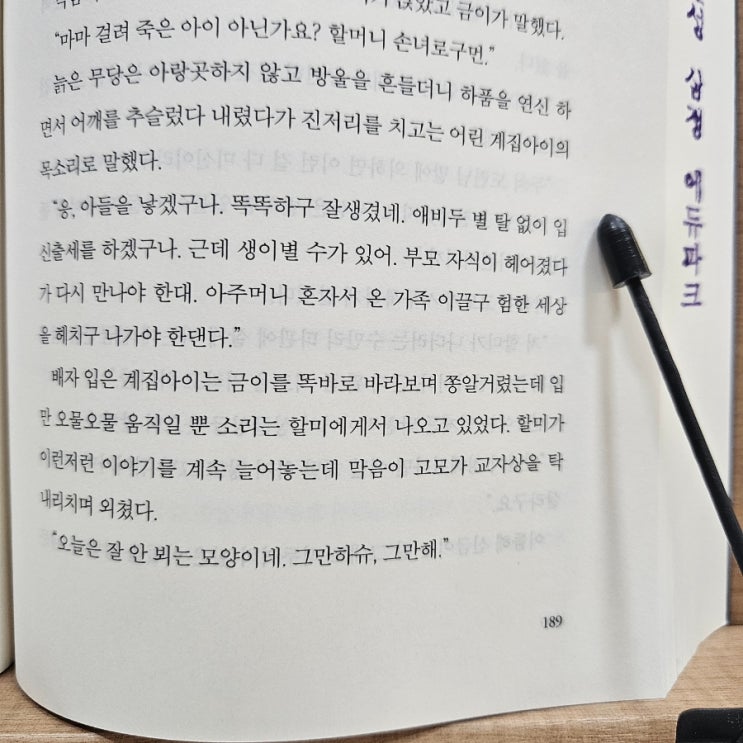 앉았고 금이가 말했다.
“마마 걸려 죽은 아이 아닌가요? 할머니 손녀로구먼.”
늙은 무당은 아랑곳하지 않고 방울을 흔들더니 하품을 연신 하
면서 어깨를 추슬렀다 내렸다가 진저리를 치고는 어린 계집아이의
목소리로 말했다.
“응, 아들을 낳겠구나. 똑똑하구 잘생겼네. 애비두 별 탈 없이 입
신출세를 하겠구나. 근데 생이별 수가 있어. 부모 자식이 헤어졌다
가 다시 만나야 한대. 아주머니 혼자서 온 가족 이끌구 험한 세상
을 헤치구 나가야 한댄다.”
배자 입은 계집아이는 금이를 똑바로 바라보며 쫑알거렸는데 입
만 오물오물 움직일 뿐 소리는 할미에게서 나오고 있었다. 할미가
이런저런 이야기를 계속 늘어놓는데 막음이 고모가 교자상을 탁
내리치며 외쳤다.
“오늘은 잘 안 뵈는 모양이네. 그만하슈, 그만해.”
189
삼성 에듀파크